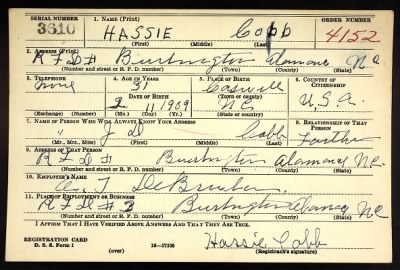 SERIAL NUMBER 1. NAME (Print) ORDER NUMBER
3610 HASSIE Cobb 4152
(First) (Middle) (Last)
2. ADDRESS (Print)
R F D # Burlington Alamance N C
(Number and street or R. F. D. number) (Town) (County) (State)
3. TELEPHONE 4. AGE IN YEARS 5. PLACE OF BIRTH 6. COUNTRY OF CITIZENSHIP
None 31 Caswell
DATE OF BIRTH (Town or county)
2 11 1909 N C U.S.A.
(Exchange) (Number) (Mo.) (Day) (Yr.) (State or country)
7. NAME OF PERSON WHO WILL ALWAYS KNOW YOUR ADDRESS 8. RELATIONSHIP OF THAT PERSON
J Cobb Father
(Mr., Mrs., Miss) (First) (Middle) (Last)
9. ADDRESS OF THAT PERSON
R F D # Burlington Alamance N.C.
(Number and street or R. F. D. number) (Town) (County) (State)
10. EMPLOYER'S NAME
T
11. PLACE OF EMPLOYMENT OR BUSINESS
R F D # 3 Burlington Alamance N C
(Number and street or R. F. D. number) (Town) (County) (State)
I AFFIRM THAT I HAVE VERIFIED ABOVE ANSWERS AND THAT THEY ARE TRUE.
REGISTRATION CARD
D. S. S. Form 1 (over) 16—17105 Hassie Cobb
(Registrant's signature)